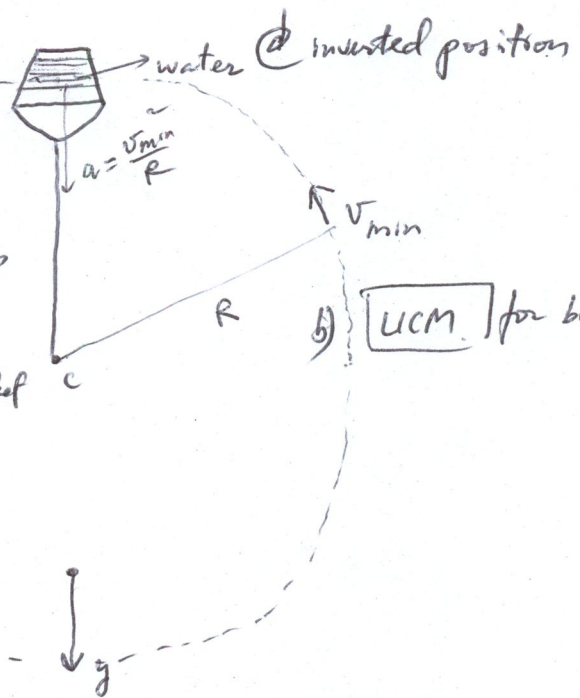 water @ inverted position
a = v²min/R
vmin
R
b) UCM for b
ef C
y